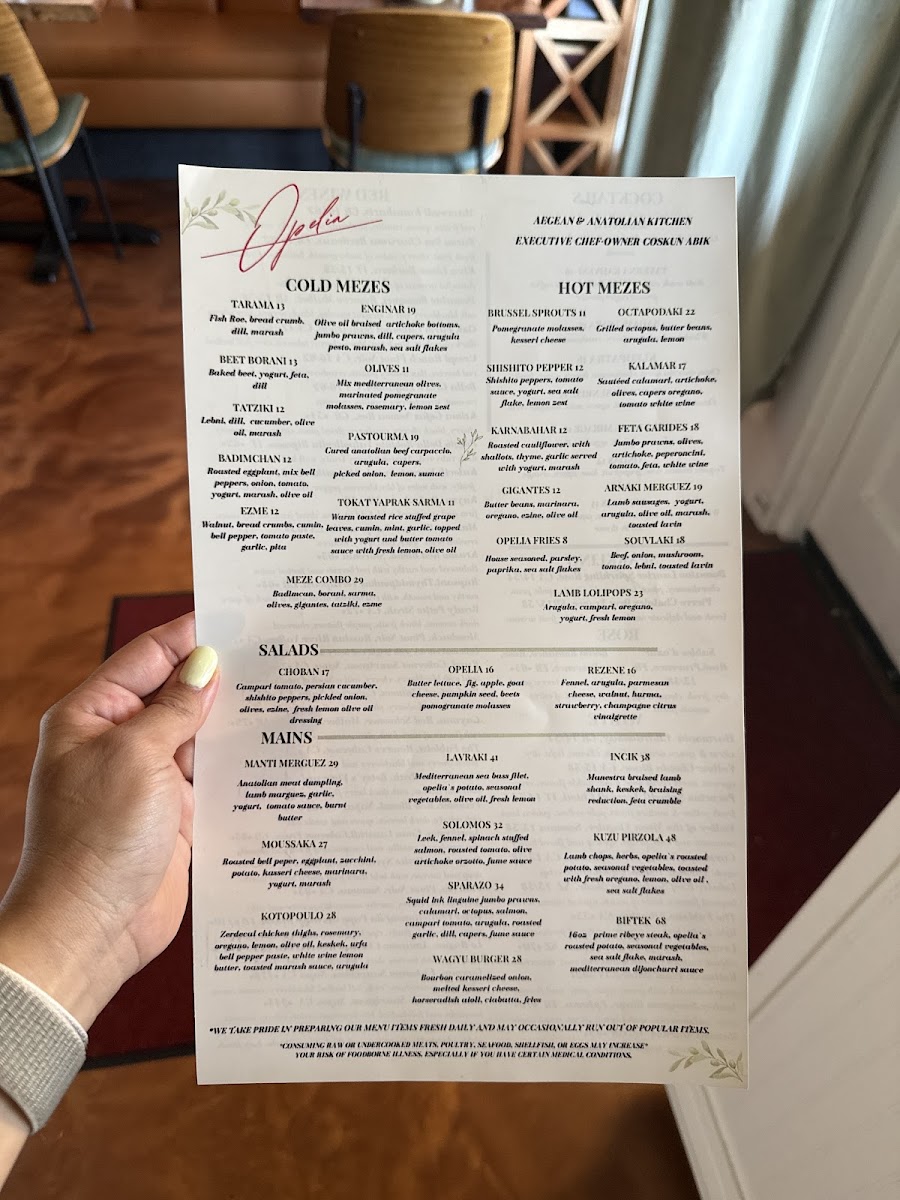 Opelia
AEGEAN & ANATOLIAN KITCHEN
EXECUTIVE CHEF-OWNER COSKUN ABIK
COLD MEZES
TARAMA 13
Fish Roe, bread crumb,
dill, marash
BEET BORANI 13
Baked beet, yogurt, feta,
dill
TATZIKI 12
Lebni, dill, cucumber, olive
oil, marash
BADIMCHAN 12
Roasted eggplant, mix bell
peppers, onion, tomato,
yogurt, marash, olive oil
EZME 12
Walnut, bread crumbs, cumin,
bell pepper, tomato paste,
garlic, pita
ENGINAR 19
Olive oil braised artichoke bottoms,
jumbo prawns, dill, capers, arugula
pesto, marash, sea salt flakes
OLIVES 11
Mix mediterranean olives,
marinated pomegranate
molasses, rosemary, lemon zest
PASTOURMA 19
Cured anatolian beef carpaccio,
arugula, capers,
picked onion, lemon, sumac
TOKAT YAPRAK SARMA 11
Warm toasted rice stuffed grape
leaves, cumin, mint, garlic, topped
with yogurt and butter tomato
sauce with fresh lemon, olive oil
MEZE COMBO 29
Badimcan, borani, sarma,
olives, gigantes, tatziki, ezme
HOT MEZES
BRUSSEL SPROUTS 11
Pomegranate molasses,
kesseri cheese
SHISHITO PEPPER 12
Shishito peppers, tomato
sauce, yogurt, sea salt
flake, lemon zest
KARNABAHAR 12
Roasted cauliflower, with
shallots, thyme, garlic served
with yogurt, marash
GIGANTES 12
Butter beans, marinara,
oregano, ezine, olive oil
OPELIA FRIES 8
House seasoned, parsley,
paprika, sea salt flakes
OCTAPODAKI 22
Grilled octopus, butter beans,
arugula, lemon
KALAMAR 17
Sautéed calamari, artichoke,
olives, capers oregano,
tomato white wine
FETA GARIDES 18
Jumbo prawns, olives,
artichoke, peperoncini,
tomato, feta, white wine
ARNAKI MERGUEZ 19
Lamb sausages, yogurt,
arugula, olive oil, marash,
toasted lavin
SOUVLAKI 18
Beef, onion, mushroom,
tomato, lebni, toasted lavin
LAMB LOLIPOPS 23
Arugula, campari, oregano,
yogurt, fresh lemon
SALADS
CHOBAN 17
Campari tomato, persian cucumber,
shishito peppers, pickled onion,
olives, ezine, fresh lemon olive oil
dressing
OPELIA 16
Butter lettuce, fig, apple, goat
cheese, pumpkin seed, beets
pomogranate molasses
REZENE 16
Fennel, arugula, parmesan
cheese, walnut, hurma,
strawberry, champagne citrus
vinaigrette
MAINS
MANTI MERGUEZ 29
Anatolian meat dumpling,
lamb marguez, garlic,
yogurt, tomato sauce, burnt
butter
MOUSSAKA 27
Roasted bell peper, eggplant, zucchini,
potato, kasseri cheese, marinara,
yogurt, marash
KOTOPOULO 28
Zerdecal chicken thighs, rosemary,
oregano, lemon, olive oil, keskek, urfa
bell pepper paste, white wine lemon
butter, toasted marash sauce, arugula
LAVRAKI 41
Mediterranean sea bass filet,
opelia's potato, seasonal
vegetables, olive oil, fresh lemon
SOLOMOS 32
Leek, fennel, spinach stuffed
salmon, roasted tomato, olive
artichoke orzotto, fume sauce
SPARAZO 34
Squid ink linguine jumbo prawns,
calamari, octopus, salmon,
campari tomato, arugula, roasted
garlic, dill, capers, fume sauce
WAGYU BURGER 28
Bourbon caramelized onion,
melted kesseri cheese,
horseradish aioli, ciabatta, fries
INCIK 38
Manestra braised lamb
shank, keskek, braising
reduction, feta crumble
KUZU PIRZOLA 48
Lamb chops, herbs, opelia's roasted
potato, seasonal vegetables, toasted
with fresh oregano, lemon, olive oil ,
sea salt flakes
BIFTEK 68
16oz prime ribeye steak, opelia's
roasted potato, seasonal vegetables,
sea salt flake, marash,
mediterranean dijoncharri sauce
*WE TAKE PRIDE IN PREPARING OUR MENU ITEMS FRESH DAILY AND MAY OCCASIONALLY RUN OUT OF POPULAR ITEMS.
*CONSUMING RAW OR UNDERCOOKED MEATS, POULTRY, SEAFOOD, SHELLFISH, OR EGGS MAY INCREASE*
YOUR RISK OF FOODBORNE ILLNESS, ESPECIALLY IF YOU HAVE CERTAIN MEDICAL CONDITIONS.